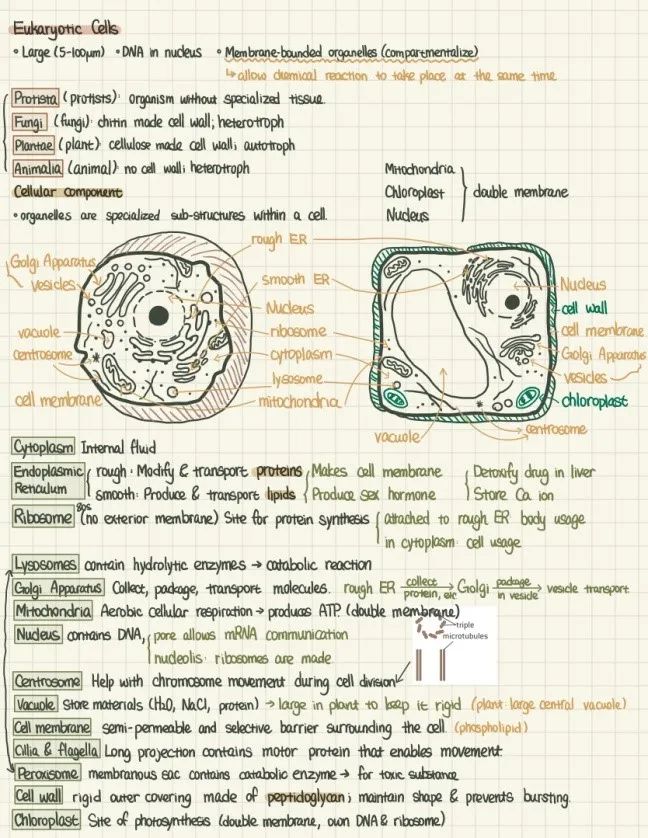 Eukaryotic Cells
• Large (5-100µm) • DNA in nucleus • Membrane-bounded organelles (compartmentalize)
↳ allow chemical reaction to take place at the same time
Protista (protists): organism without specialized tissue.
Fungi (fungi): chitin made cell wall; heterotroph
Plantae (plant): cellulose made cell wall; autotroph
Animalia (animal): no cell wall; heterotroph
Mitochondria
Chloroplast
Nucleus
double membrane
Cellular component
• organelles are specialized sub-structures within a cell.
Golgi Apparatus
vesicles
vacuole
centrosome
cell membrane
rough ER
smooth ER
Nucleus
ribosome
cytoplasm
lysosome
mitochondria
Nucleus
cell wall
cell membrane
Golgi Apparatus
vesicles
chloroplast
centrosome
vacuole
Cytoplasm Internal fluid
Endoplasmic Reticulum
rough: Modify & transport proteins
smooth: Produce & transport lipids
Makes cell membrane
Produce sex hormone
Detoxify drug in liver
Store Ca ion
Ribosome 80s (no exterior membrane) Site for protein synthesis
attached to rough ER: body usage
in cytoplasm: cell usage
Lysosomes contain hydrolytic enzymes → catabolic reaction
Golgi Apparatus Collect, package, transport molecules. rough ER collect protein, etc → Golgi package in vesicle → vesicle transport
Mitochondria Aerobic cellular respiration → produces ATP. (double membrane)
Nucleus contains DNA,
pore allows mRNA communication
nucleolis: ribosomes are made
triple
microtubules
Centrosome Help with chromosome movement during cell division
Vacuole Store materials (H₂O, NaCl, protein) → large in plant to keep it rigid (plant large central vacuole)
Cell membrane semi-permeable and selective barrier surrounding the cell. (phospholipid)
Cillia & flagella Long projection contains motor protein that enables movement.
Peroxisome membranous sac contains catabolic enzyme → for toxic substance
Cell wall rigid outer covering made of peptidoglycan; maintain shape & prevents bursting.
Chloroplast Site of photosynthesis (double membrane, own DNA & ribosome)